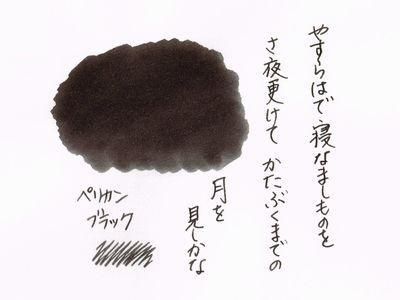 やすらはで寝なましものを
さ夜更けて かたぶくまでの
月を
見しかな
ペリカン
ブラック